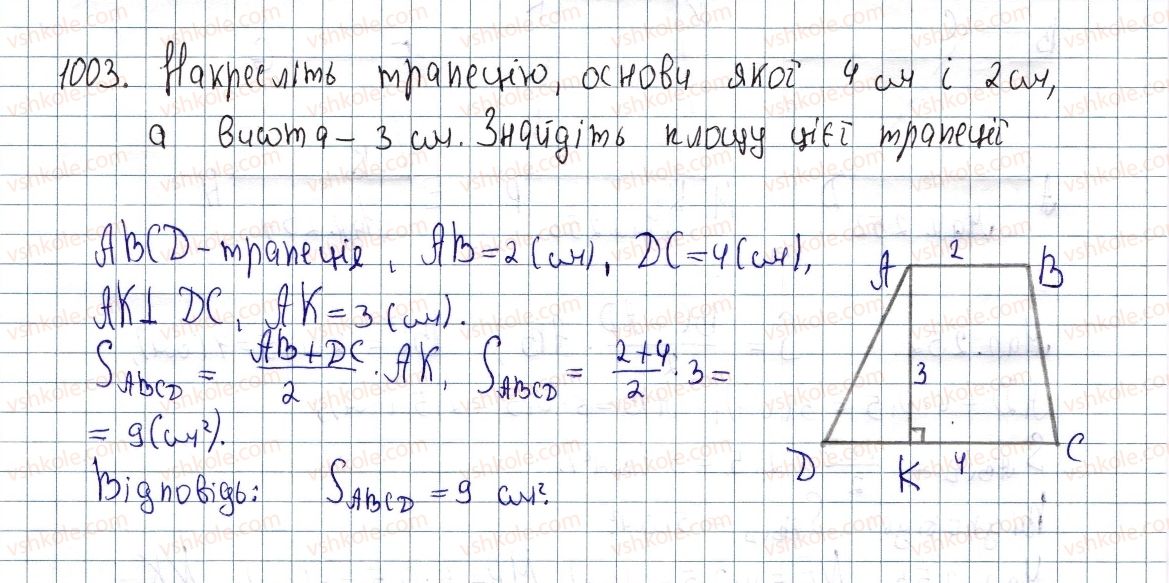 1003. Накресліть трапецію, основи якої 4 см і 2 см,
а висота – 3 см. Знайдіть площу цієї трапеції
ABCD – трапеція, AB = 2 (см), DC = 4 (см),
AK ⊥ DC, AK = 3 (см).
S_ABCD = (AB + DC)/2 · AK, S_ABCD = (2 + 4)/2 · 3 =
= 9 (см²).
Відповідь: S_ABCD = 9 см².
A 2 B
3
D K 4 C
vshkole.com